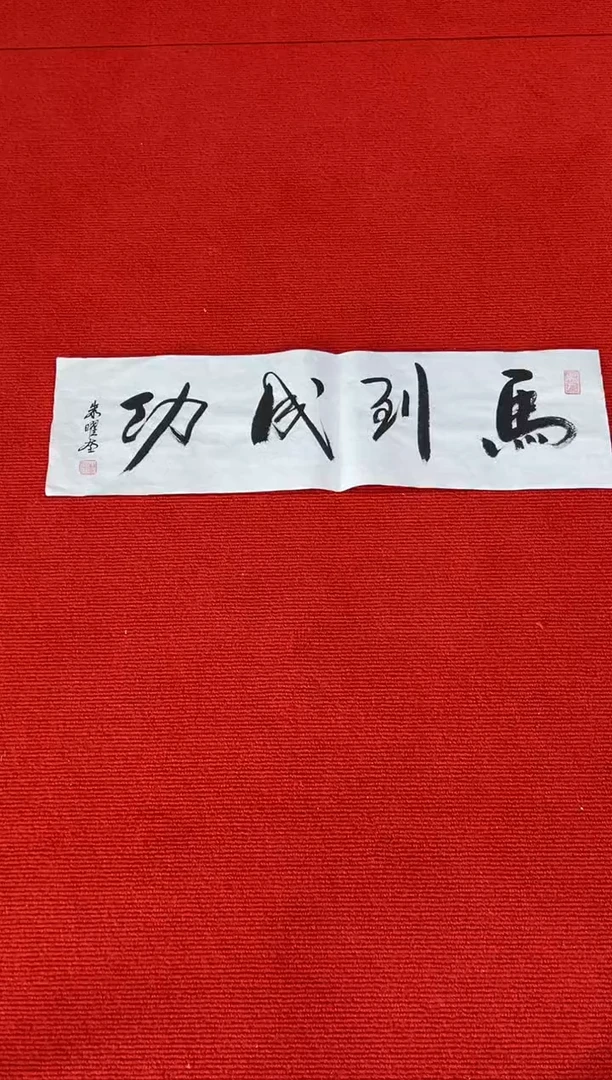 馬到成功
朱曜奎